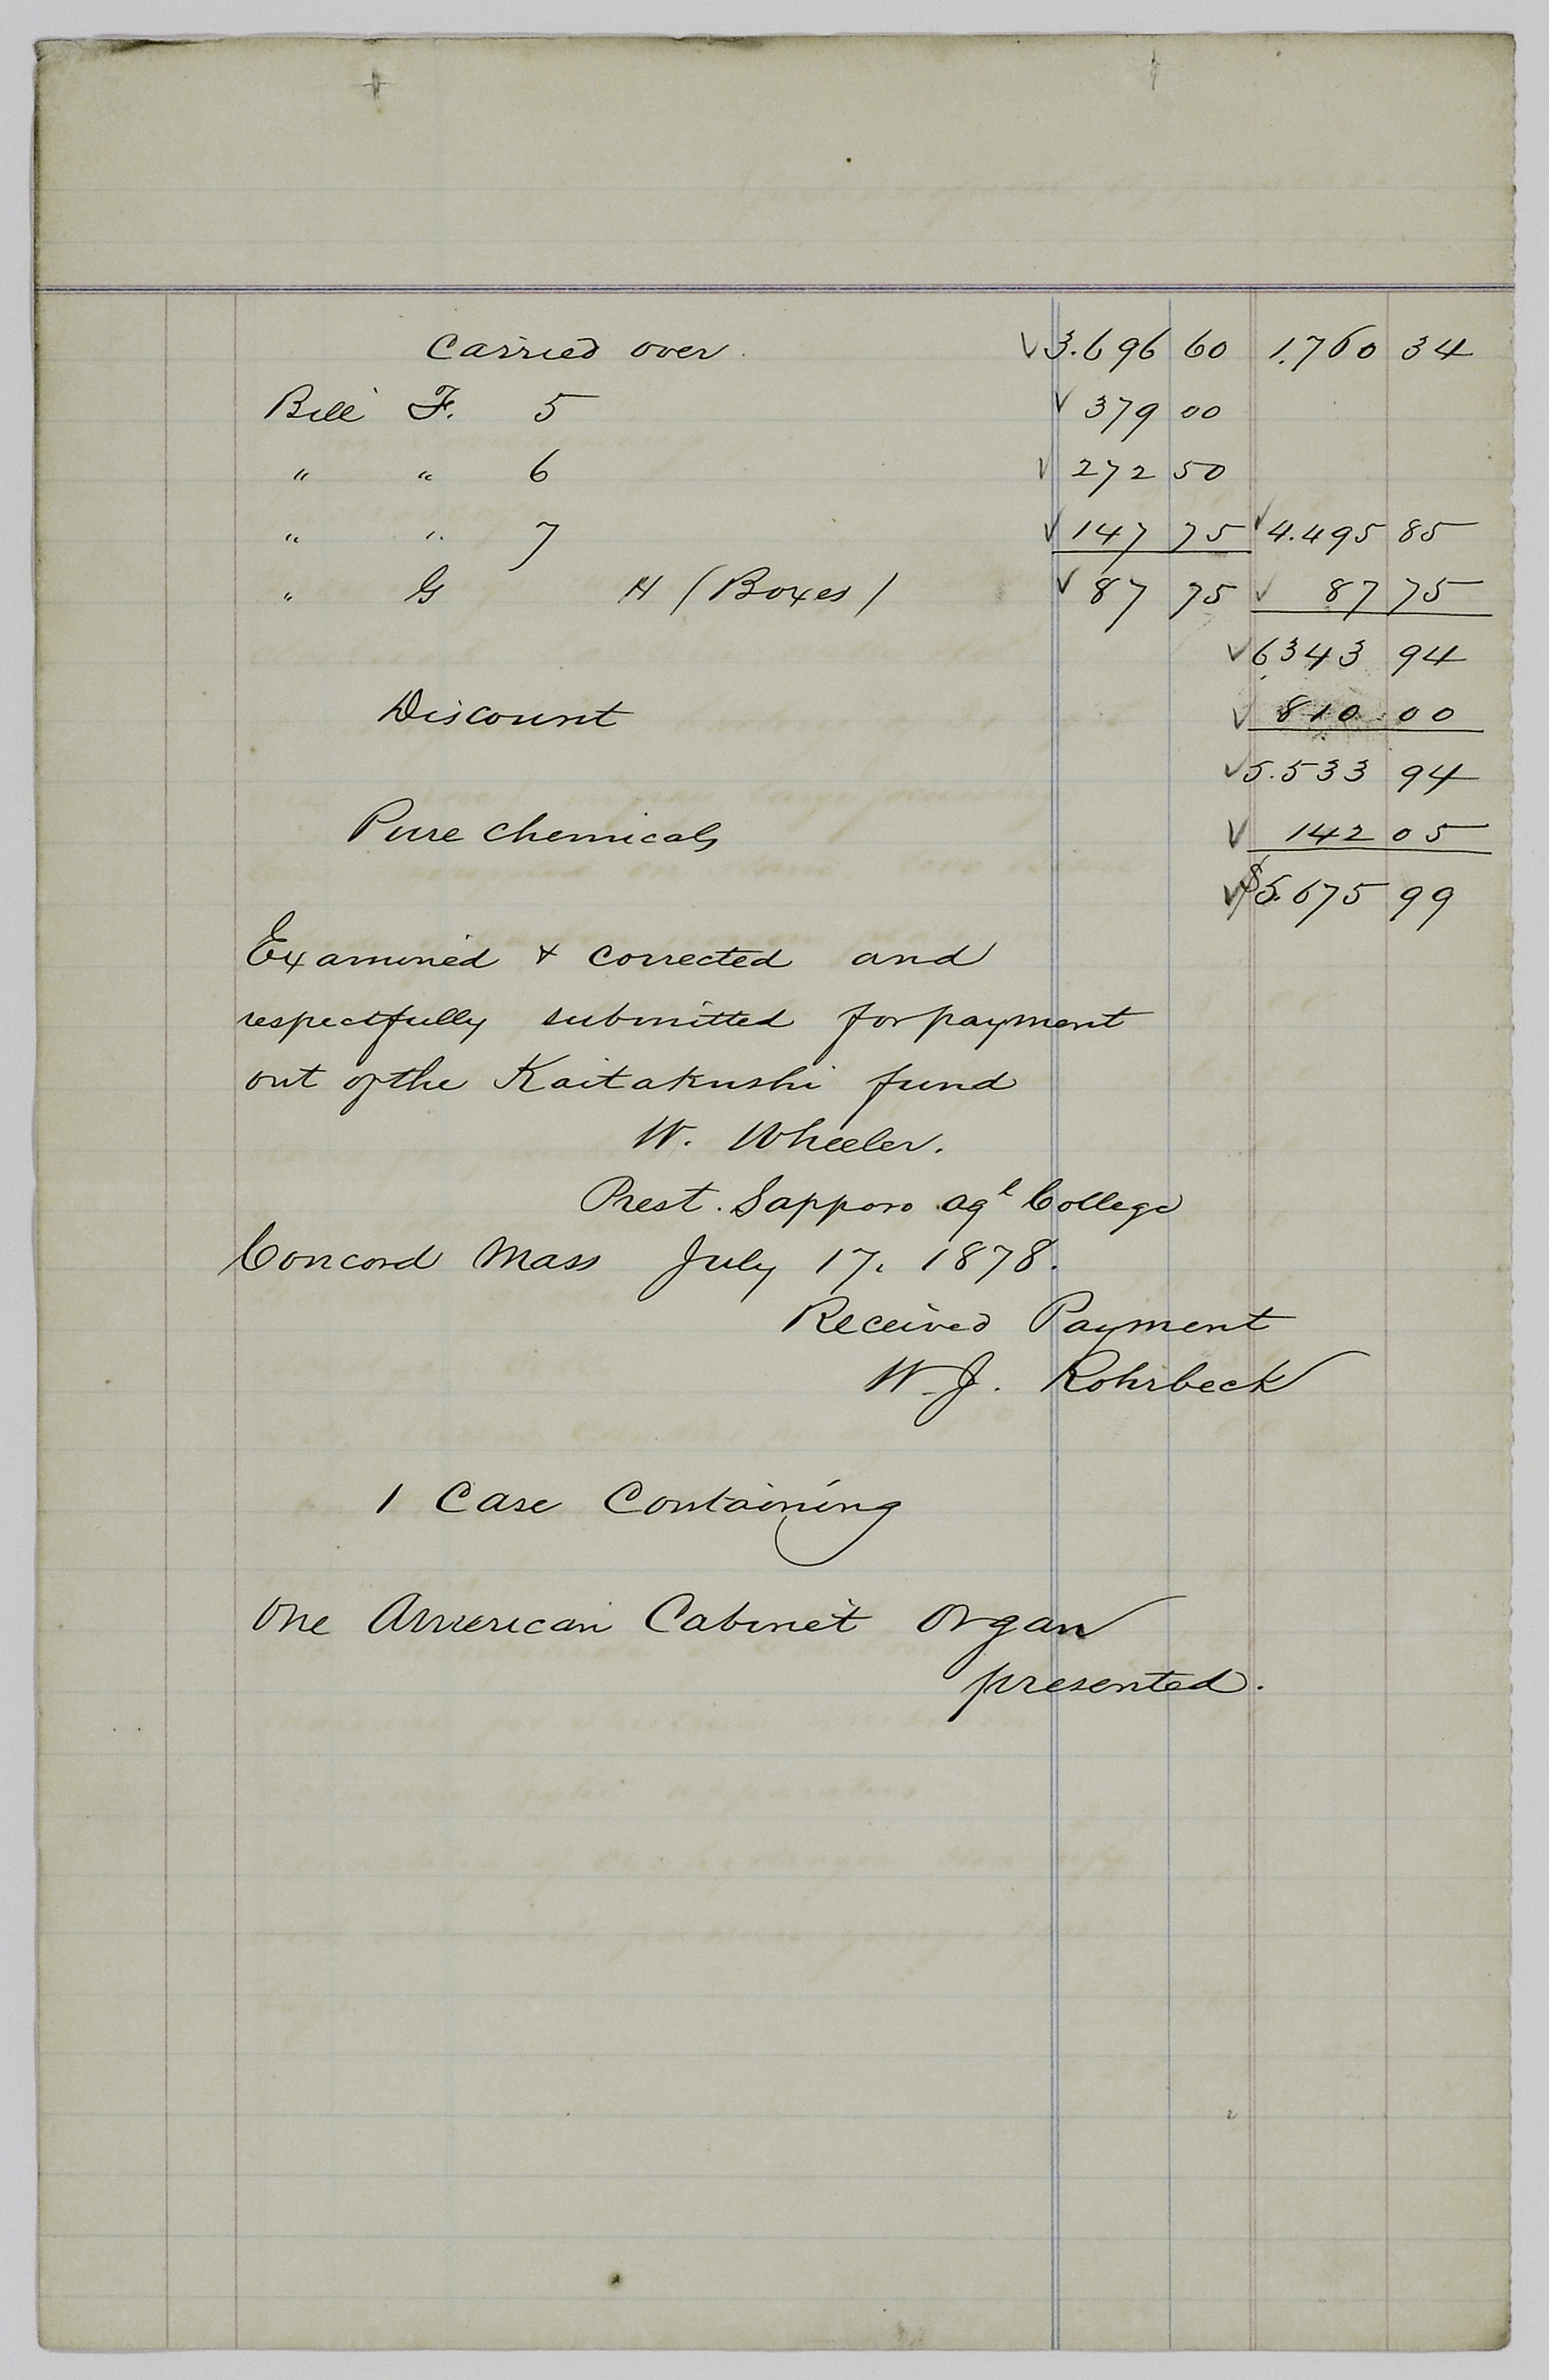 Carried over. √3.696 60 1.760 34
Bill F. 5 √379 00
" " 6 √272 50
" " 7 √147 75 √4.495 85
" G H (Boxes) √87 75 √87 75
√6343 94
Discount √810 00
√5.533 94
Pure chemicals √142 05
√$5.675 99
Examined & corrected and
respectfully submitted for payment
out of the Kaitakushi fund
W. Wheeler.
Prest. Sapporo Agl College
Concord Mass July 17. 1878.
Received Payment
W. J. Rohrbeck
1 Case Containing
One American Cabinet Organ
presented.